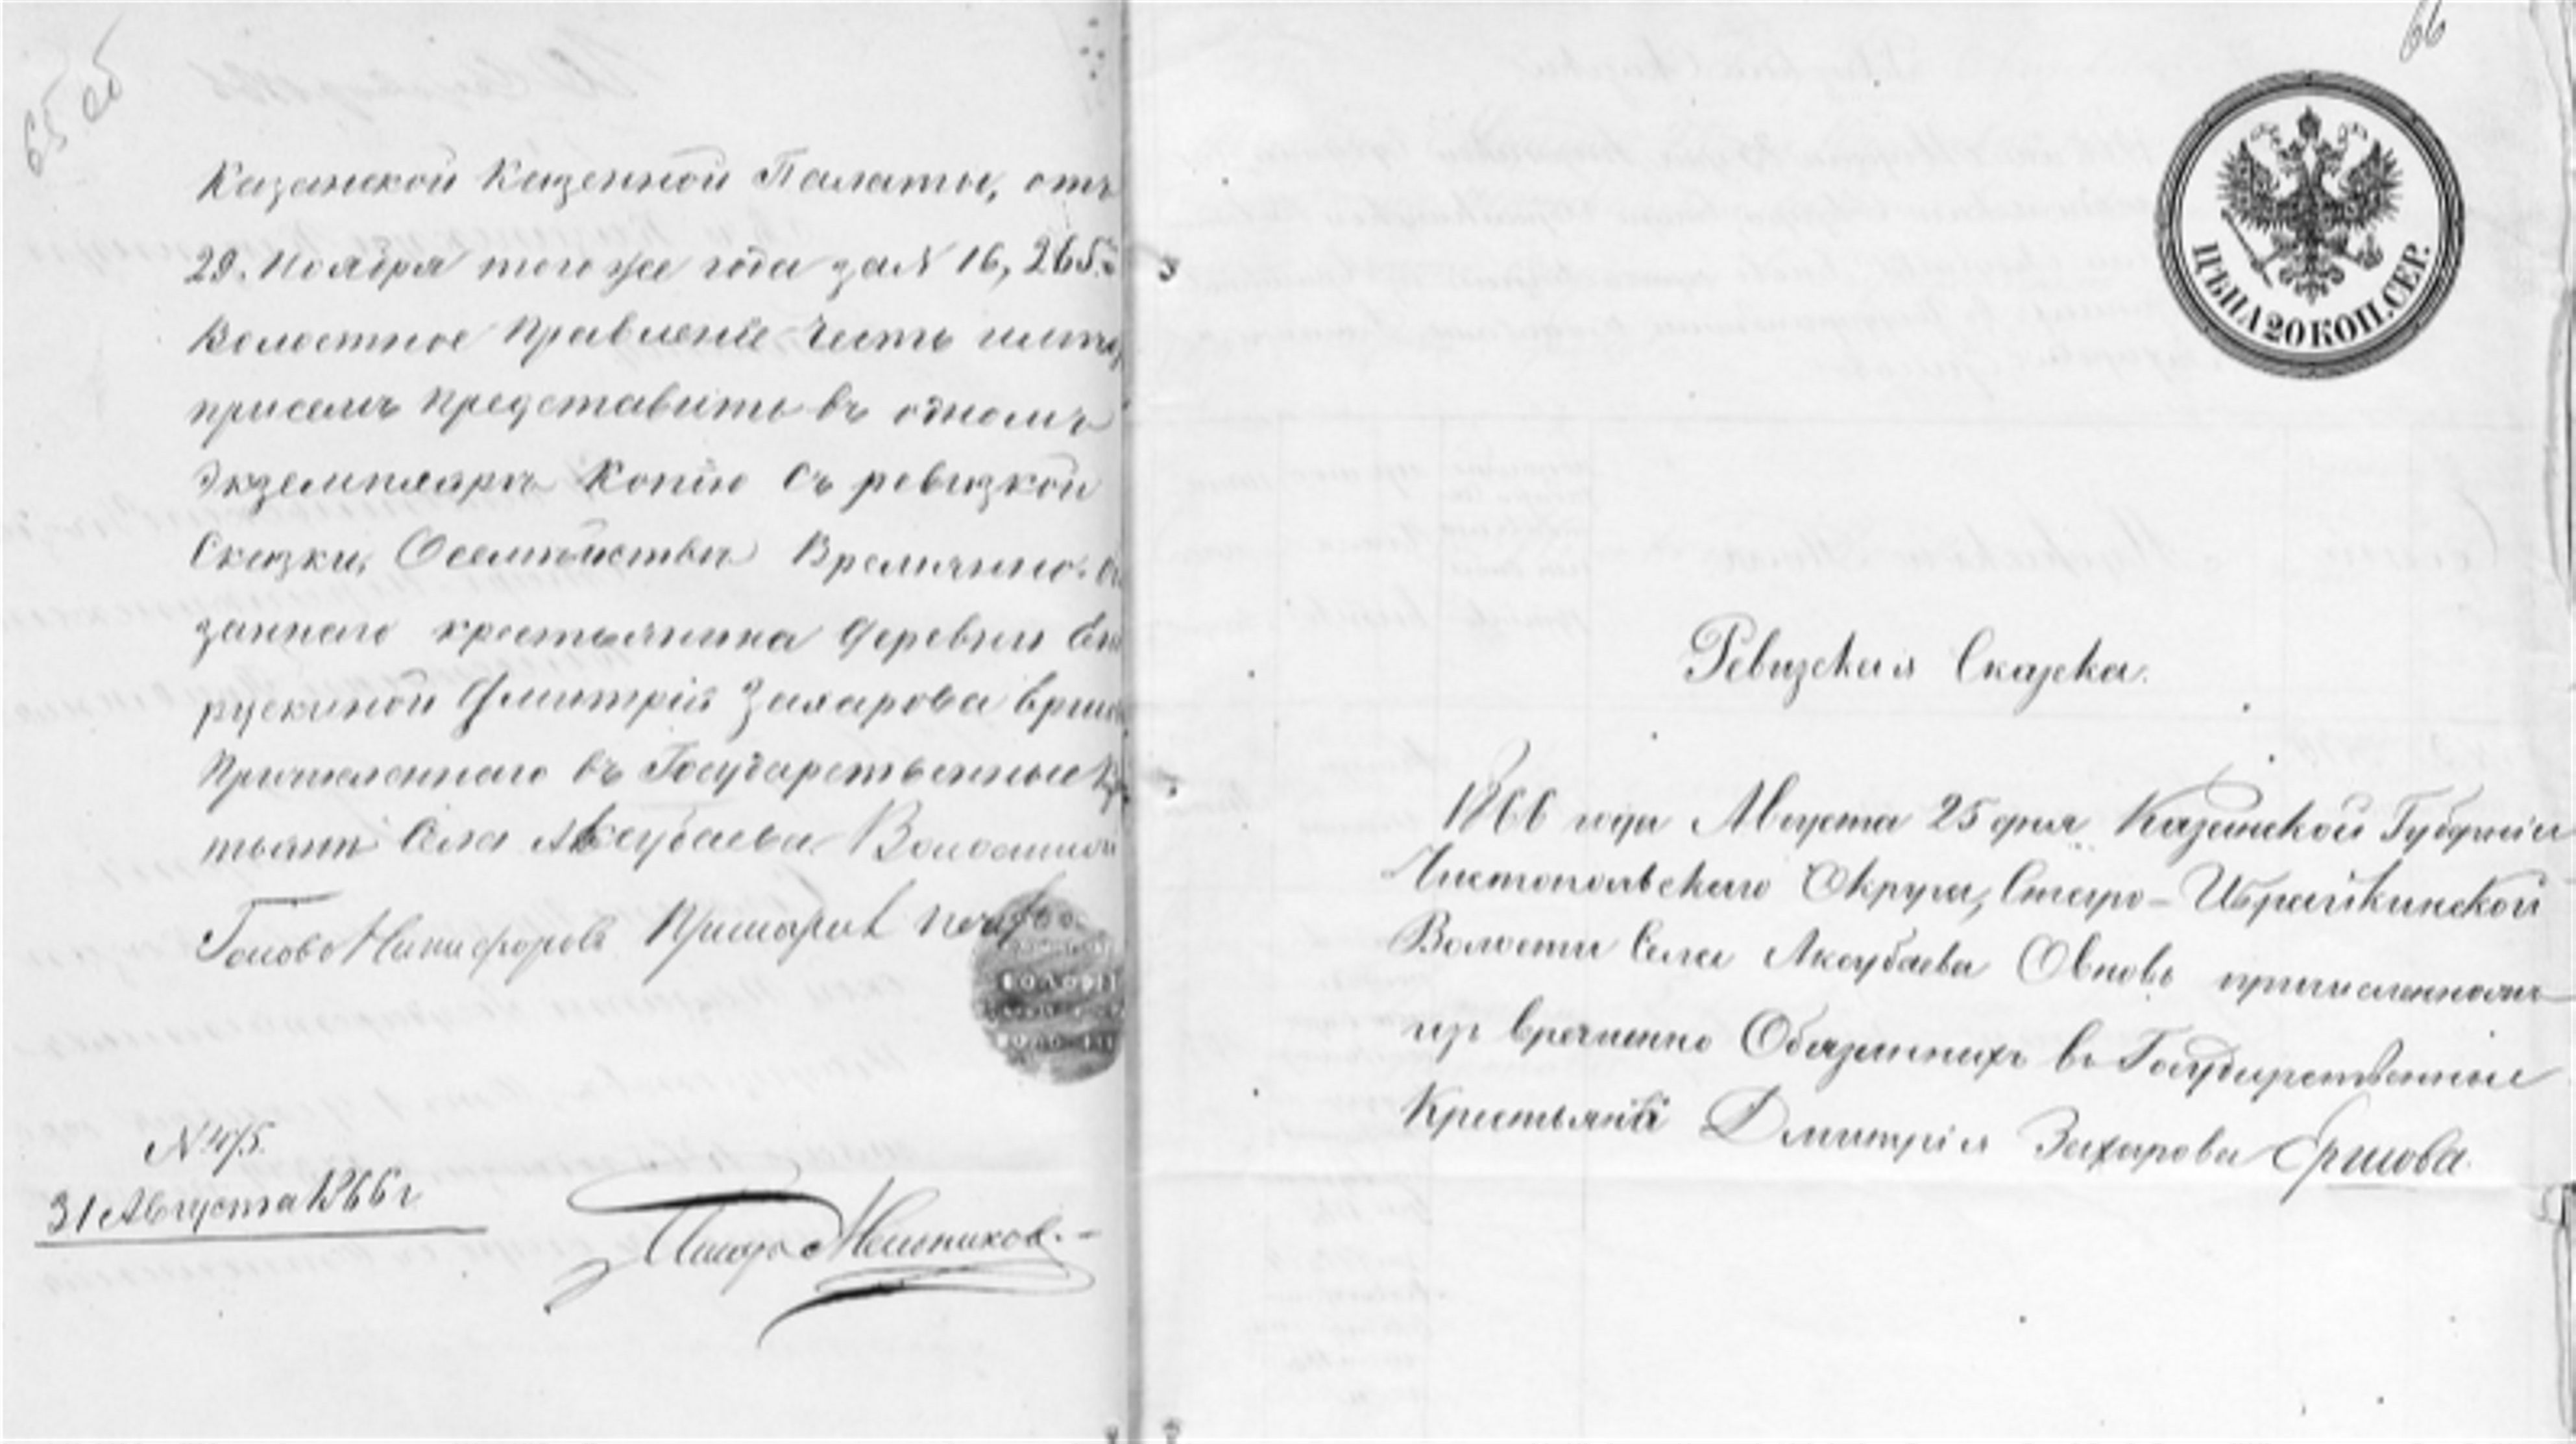 65 об
Казанской Казенной Палаты, отъ
29. Ноября того же года за N 16,265.
Волостное Правленіе Честь имѣетъ
присемъ представить въ одномъ
Экземплярѣ Копію съ ревизкой
Сказки, О семѣйствѣ Времянно-
заннаго крестьянина Деревни
рускиной Дмитрій Захарова
Причисленнаго въ Государственные
тьяне Села Аксубаева. Волостной
Голова Никифоровъ
N 475.
31 Августа 1866 г
Писарь Мельниковъ.
66
ЦѢНА 20 КОП. СЕР.
Ревизская Сказка.
1866 года Августа 25 дня Казанской Губерніи
Чистопольскаго Округа, Старо-Ибрайкинской
Волости Села Аксубаева О вновь причисленномъ
изъ временно Обязанныхъ въ Государственные
Крестьяне Дмитрія Захарова Ершова.